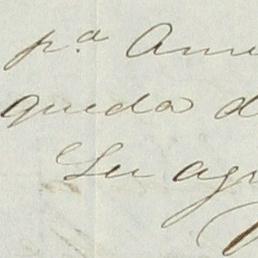 pª Ame
queda d
Su ag